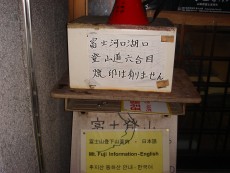 富士河口湖口
登山道六合目
焼印は有りません
富士登山
富士山登下山案内 - 日本語
Mt. Fuji Information-English